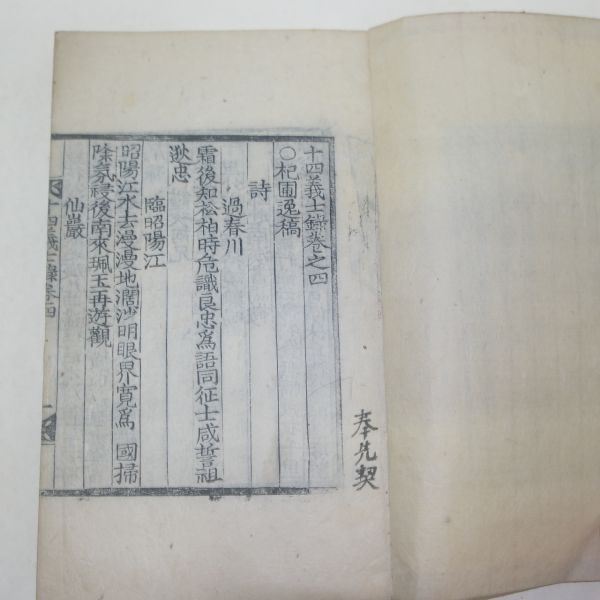 十四義士錄卷之四
○杞圃逸稿
詩
過春川
霜後知松柏時危識良忠爲語同征士咸誓祖
逖忠
臨昭陽江
昭陽江水去漫漫地濶沙明眼界寬爲 國掃
除氛祲後南來珮玉再遊觀
仙巖
十四義士錄卷四 一
奉先契